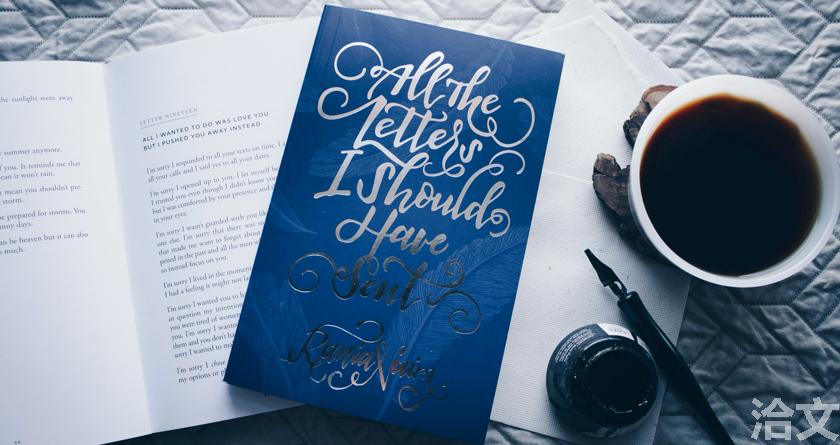 the sunlight went away
summer anymore,
f you. It reminds me that
ean it won't rain.
t mean you shouldn't pre-
storm.
be prepared for storms. You
anny days.
an be heaven but it can also
s much.
64
LETTER NINETEEN
ALL I WANTED TO DO WAS LOVE YOU
BUT I PUSHED YOU AWAY INSTEAD
I'm sorry I responded to all your texts on time. I a
all your calls and I said yes to all your dates.
I'm sorry I opened up to you, I let myself be
I trusted you even though I didn't know you
but I was comforted by your presence and th
in your eyes.
I'm sorry I wasn't guarded with you like
one else. I'm sorry that there was so
that made me want to forget about
pened in the past and all the men w
to instead focus on you.
I'm sorry I lived in the moment
I had a feeling it might not la
I'm sorry I wanted you to h
or question my intention
you were tired of women
them and you don't ha
sorry I wanted to ma
I'm sorry I chos
my options or p
All the
Letters
I Should
Have
Sent
Rania Naim
洽文